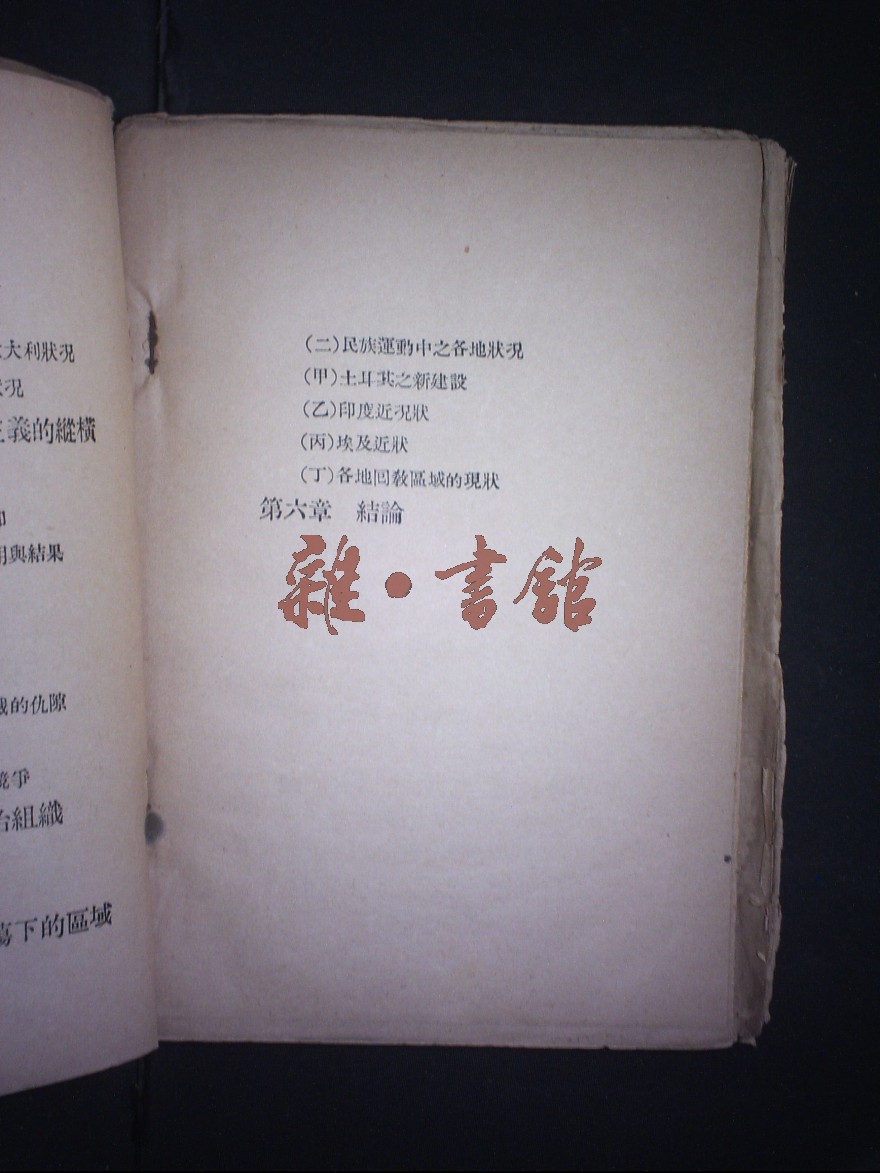 大利狀況
況
義的縱橫
與結果
的仇隙
競爭
組織
下的區域
(二)民族運動中之各地狀況
(甲)土耳其之新建設
(乙)印度近況狀
(丙)埃及近狀
(丁)各地回敎區域的現狀
第六章 結論
雜·書館